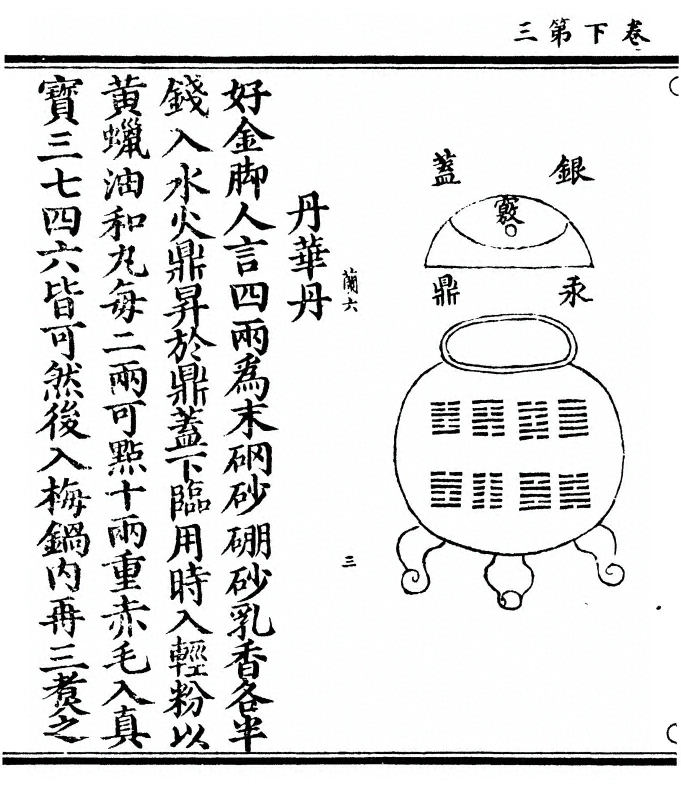 卷下第三
銀蓋
竅
汞鼎
蘭六
三
丹華丹
好金脚人言四兩爲末硇砂硼砂乳香各半
錢入水火鼎昇於鼎蓋下臨用時入輕粉以
黃蠟油和丸每二兩可點十兩重赤毛入真
寶三七四六皆可然後入梅鍋內再三煑之